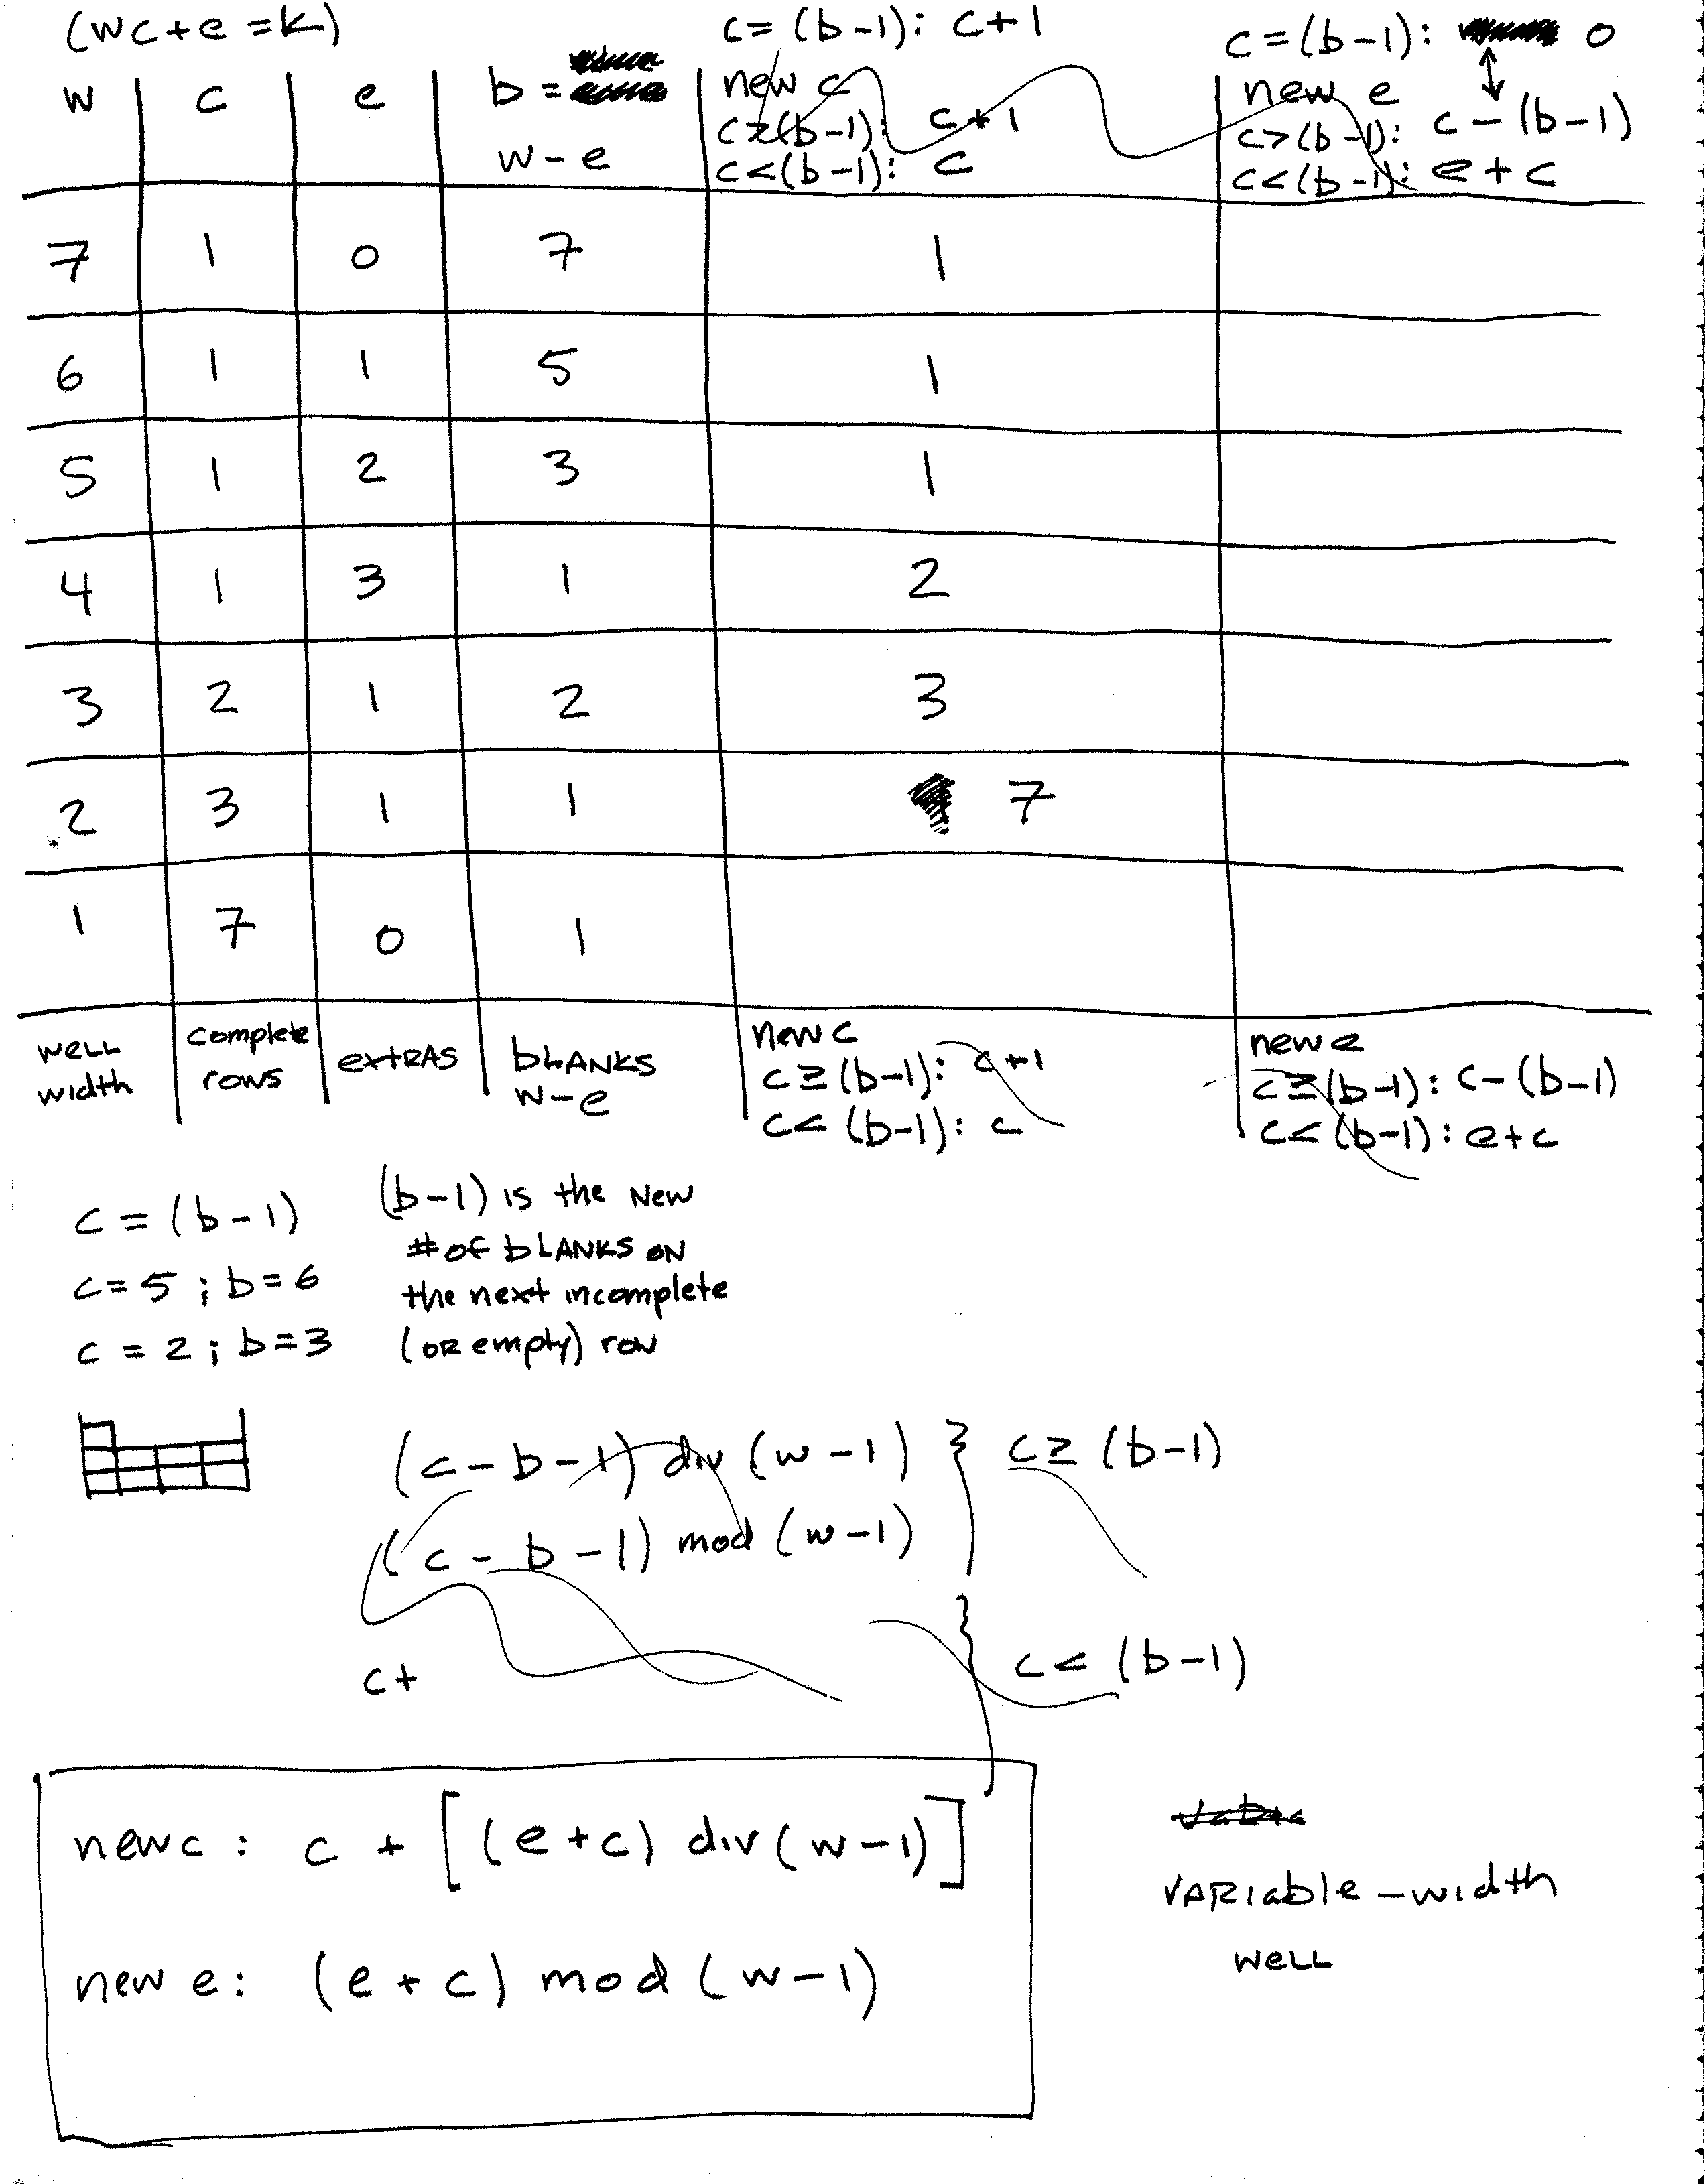 (wc+e=k)
c=(b-1): c+1
c=(b-1): 0
w c e b=
w-e
new c
c≥(b-1): c+1
c<(b-1): c
new e
c>(b-1): c-(b-1)
c<(b-1): e+c
7 1 0 7 1
6 1 1 5 1
5 1 2 3 1
4 1 3 1 2
3 2 1 2 3
2 3 1 1 7
1 7 0 1
well width
complete rows
extras
blanks
w-e
new c
c≥(b-1): c+1
c<(b-1): c
new e
c≥(b-1): c-(b-1)
c<(b-1): e+c
c=(b-1)
c=5; b=6
c=2; b=3
(b-1) is the new
# of blanks on
the next incomplete
(or empty) row
(c-b-1) div (w-1) } c≥(b-1)
(c-b-1) mod (w-1)
c+ } c<(b-1)
new c: c+[(e+c) div (w-1)]
new e: (e+c) mod (w-1)
variable-width
well